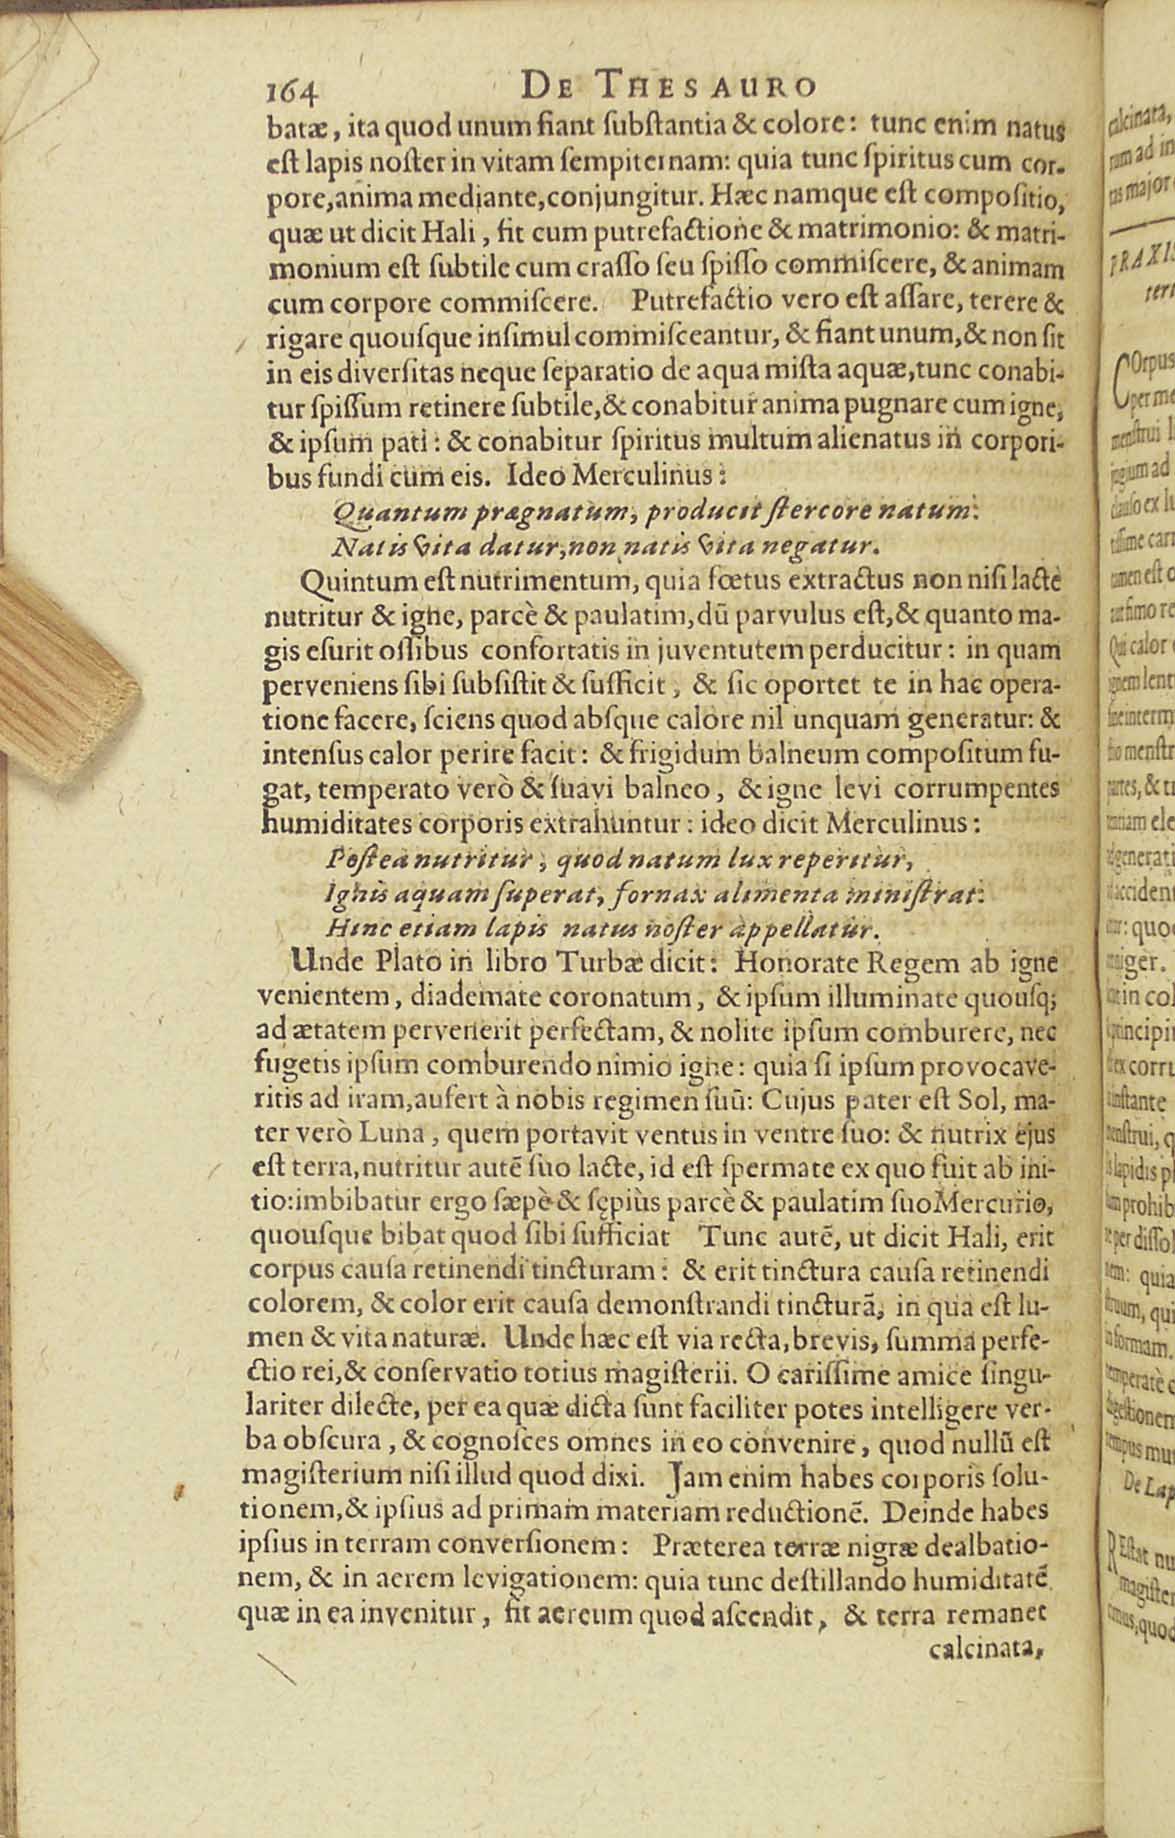 164 DE THESAURO
batæ, ita quod unum fiant ſubſtantia & colore: tunc enim natus
eſt lapis noſter in vitam ſempiternam: quia tunc ſpiritus cum cor-
pore, anima mediante, conjungitur. Hæc namque eſt compoſitio,
quæ ut dicit Hali, fit cum putrefactione & matrimonio: & matri-
monium eſt ſubtile cum craſſo ſeu ſpiſſo commiſcere, & animam
cum corpore commiſcere. Putrefactio vero eſt aſſare, terere &
rigare quouſque inſimul commiſceantur, & fiant unum, & non ſit
in eis diverſitas neque ſeparatio de aqua miſta aquæ, tunc conabi-
tur ſpiſſum retinere ſubtile, & conabitur anima pugnare cum igne,
& ipſum pati: & conabitur ſpiritus multum alienatus in corpori-
bus fundi cum eis. Ideo Merculinus:
Quantum prægnatum, producit ſtercore natum:
Natis vita datur, non natis vita negatur.
Quintum eſt nutrimentum, quia fœtus extractus non niſi lacte
nutritur & igne, parcè & paulatim, dū parvulus eſt, & quanto ma-
gis eſurit oſſibus confortatis in juventutem perducitur: in quam
perveniens ſibi ſubſiſtit & ſufficit, & ſic oportet te in hac opera-
tione facere, ſciens quod abſque calore nil unquam generatur: &
intenſus calor perire facit: & frigidum balneum compoſitum fu-
gat, temperato verò & ſuavi balneo, & igne levi corrumpentes
humiditates corporis extrahuntur: ideo dicit Merculinus:
Poſtea nutritur, quod natum lux reperitur,
Ignis aquam ſuperat, fornax alimenta miniſtrat:
Hinc etiam lapis natus noſter appellatur.
Unde Plato in libro Turbæ dicit: Honorate Regem ab igne
venientem, diademate coronatum, & ipſum illuminate quouſq;
ad ætatem pervenerit perfectam, & nolite ipſum comburere, nec
fugetis ipſum comburendo nimio igne: quia ſi ipſum provocave-
ritis ad iram, aufert à nobis regimen ſuū: Cujus pater eſt Sol, ma-
ter verò Luna, quem portavit ventus in ventre ſuo: & nutrix ejus
eſt terra, nutritur autē ſuo lacte, id eſt ſpermate ex quo fuit ab ini-
tio: imbibatur ergo ſæpè & ſępiùs parcè & paulatim ſuo Mercurio,
quouſque bibat quod ſibi ſufficiat Tunc autē, ut dicit Hali, erit
corpus cauſa retinendi tincturam: & erit tinctura cauſa retinendi
colorem, & color erit cauſa demonſtrandi tincturā, in qua eſt lu-
men & vita naturæ. Unde hæc eſt via recta, brevis, ſumma perfe-
ctio rei, & conſervatio totius magiſterii. O cariſſime amice ſingu-
lariter dilecte, per ea quæ dicta ſunt faciliter potes intelligere ver-
ba obſcura, & cognoſces omnes in eo convenire, quod nullū eſt
magiſterium niſi illud quod dixi. Jam enim habes corporis ſolu-
tionem, & ipſius ad primam materiam reductionē. Deinde habes
ipſius in terram converſionem: Præterea terræ nigræ dealbatio-
nem, & in aerem levigationem: quia tunc deſtillando humiditatē
quæ in ea invenitur, fit aereum quod aſcendit, & terra remanet
calcinata,